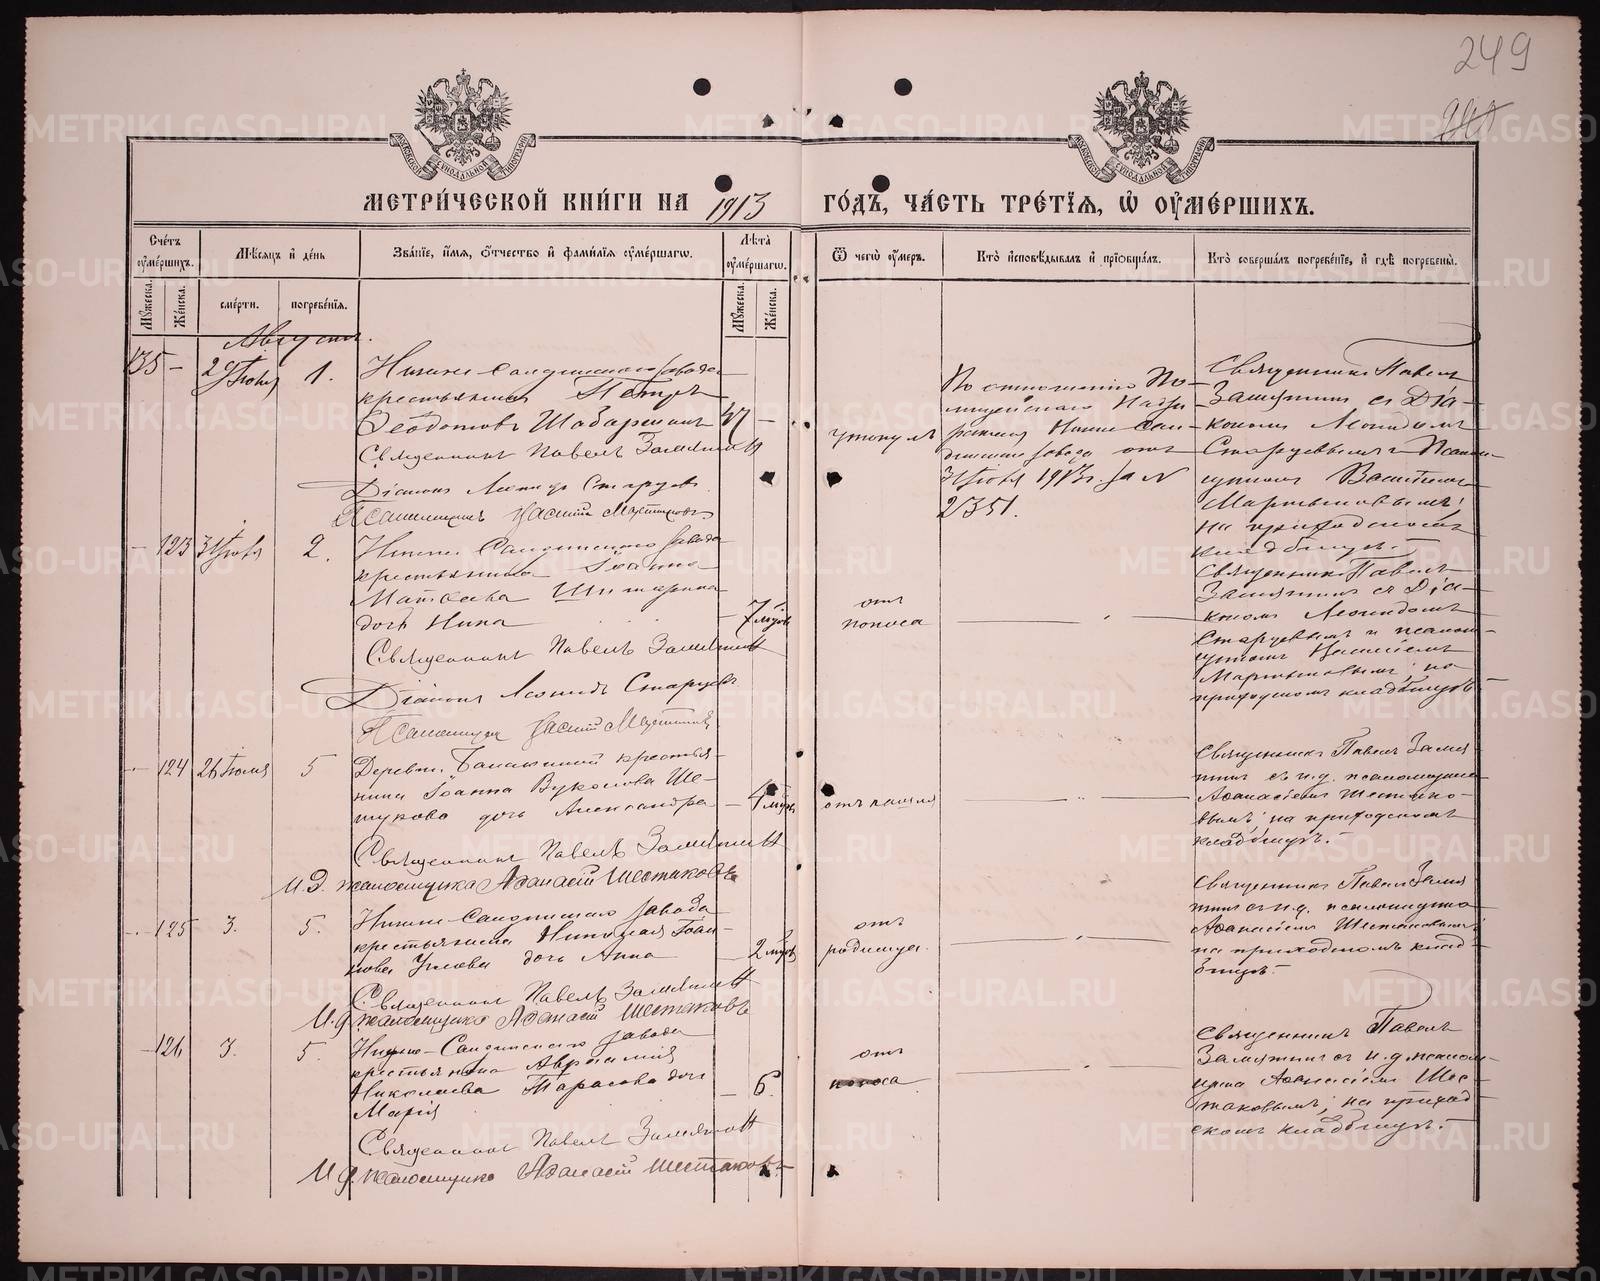 249
МЕТРИ́ЧЕСКОЙ КНИ́ГИ НА 1913 ГО́ДЪ, ЧА́СТЬ ТРЕ́ТІЯ, Ѽ ОУ҆МЕ́РШИХЪ.
Сче́тъ оумершихъ.
Мѣсяцъ и день
Зва́ніе, и́мя, о́тчество и фами́лія оуме́ршагѡ.
Лѣта оуме́ршагѡ.
Ѿ чегѡ̀ оу́меръ.
Кто̀ исповѣ́дывалъ и пріѡбща́лъ.
Кто̀ соверша́лъ погребе́ніе, и гдѣ̀ погребены̀.
Мꙋ́жеска.
Же́нска.
сме́рти.
погребе́нія.
Мꙋ́жеска.
Же́нска.
Августъ.
135 – 29 Іюля 1.
Нижне-Салдинскаго завода
крестьянинъ Петръ
Ѳеодотовъ 47 –
Священникъ Павелъ Замятинъ
Діаконъ Леонидъ Старцевъ
Псаломщикъ Василій Мартыновъ
утонулъ
По отношенію По-
лицейскаго Надзи-
рателя Нижне-Сал-
динскаго завода отъ
31 Іюля 1913 г. за №
2351.
Священникъ Павелъ
Замятинъ съ Діа-
кономъ Леонидомъ
Старцевымъ и Псалом-
щикомъ Василіемъ
Мартыновымъ;
на приходскомъ
кладбищѣ.
– 123 31 Іюля 2.
Нижне-Салдинскаго завода
крестьянина Іоанна
Матѳеева
дочь Нина – 7 мѣсяц
Священникъ Павелъ Замятинъ
Діаконъ Леонидъ Старцевъ
Псаломщикъ Василій Мартыновъ
отъ
поноса
Священникъ Павелъ
Замятинъ съ Діа-
кономъ Леонидомъ
Старцевымъ и псалом-
щикомъ Василіемъ
Мартыновымъ; на
приходскомъ кладбищѣ
– 124 26 Іюля 5
Деревни крестья-
нина Іоанна Вуколова Ше-
стукова дочь Александра – 4 мѣс
Священникъ Павелъ Замятинъ
И.д. псаломщика Аѳанасій Шестаковъ
отъ кашля
Священникъ Павелъ Замя-
тинъ съ и.д. псаломщика
Аѳанасіемъ Шестако-
вымъ; на приходскомъ
кладбищѣ.
– 125 3. 5.
Нижне-Салдинскаго завода
крестьянина Николая Іоан-
нова дочь Анна – 2 мѣс
Священникъ Павелъ Замятинъ
И.д. псаломщика Аѳанасій Шестаковъ
отъ
родимца.
Священникъ Павелъ Замя
тинъ съ и.д. псаломщика
Аѳанасіемъ Шестаковымъ
на приходскомъ клад-
бищѣ.
– 126 3. 5.
Нижне-Салдинскаго завода
крестьянина
Николаева Тарасова дочь
Марія – 6.
Священникъ Павелъ Замятинъ
И.д. псаломщика Аѳанасій Шестаковъ
отъ
поноса
Священникъ Павелъ
Замятинъ съ и.д. псалом-
щика Аѳанасіемъ Шес-
таковымъ; на приход-
скомъ кладбищѣ.
METRIKI.GASO-URAL.RU